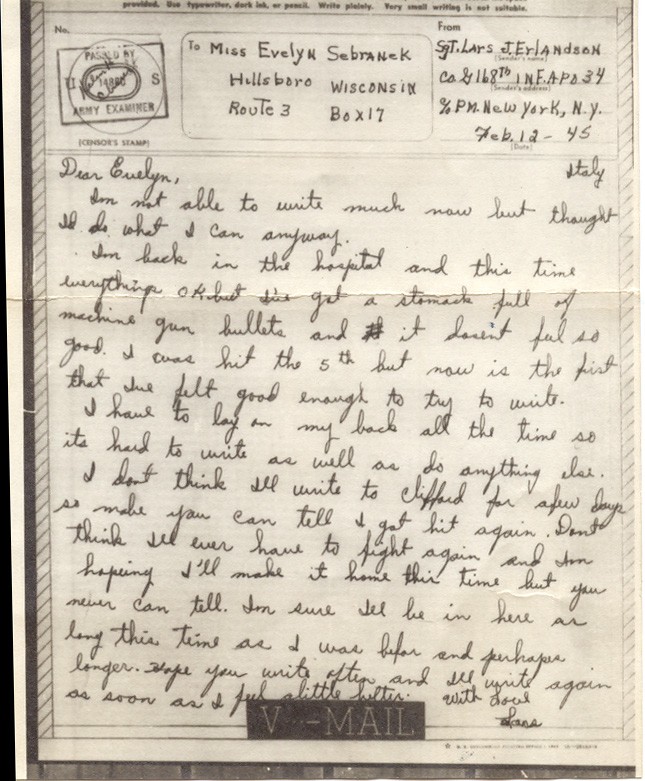 provided. Use typewriter, dark ink, or pencil. Write plainly. Very small writing is not suitable.
No.
PASSED BY
U S
ARMY EXAMINER
(CENSOR'S STAMP)
To Miss Evelyn Sebranek
Hillsboro Wisconsin
Route 3 Box 17
From
Sgt. Lars J. Erlandson
(Sender's name)
Co G 168th INF. APO 34
(Sender's address)
c/o PM. New York, N.Y.
Feb. 12 - 45
(Date)
Italy
Dear Evelyn,
Im not able to write much now but thought
Id do what I can anyway.
Im back in the hospital and this time
everythings OK but I've got a stomack full of
machine gun bullets and it dosent feel so
good. I was hit the 5th but now is the first
that Ive felt good enough to try to write.
I have to lay on my back all the time so
its hard to write as well as do anything else.
I dont think Ill write to Clifford for afew days
so make you can tell I got hit again. Dont
think Ill ever have to fight again and Im
hopeing I'll make it home this time but you
never can tell. Im sure Ill be in here as
long this time as I was befor and perhaps
longer. Hope you write often and Ill write again
as soon as I feel alittle better.
With Love
Lars
V···-MAIL